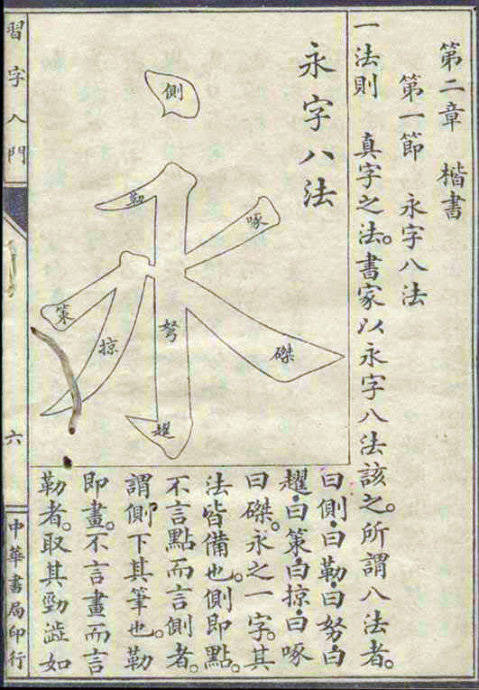 第二章　楷書
第一節　永字八法
一法則　真字之法。書家以永字八法該之。所謂八法者。
永字八法
側
勒
啄
策
掠
努
磔
趯
曰側。曰勒。曰努。曰
趯。曰策。曰掠。曰啄
曰磔。永之一字。其
法皆備也。側即點。
不言點而言側者。
謂側下其筆也。勒
即畫。不言畫而言
勒者。取其勁澁如
習字入門
六
中華書局印行